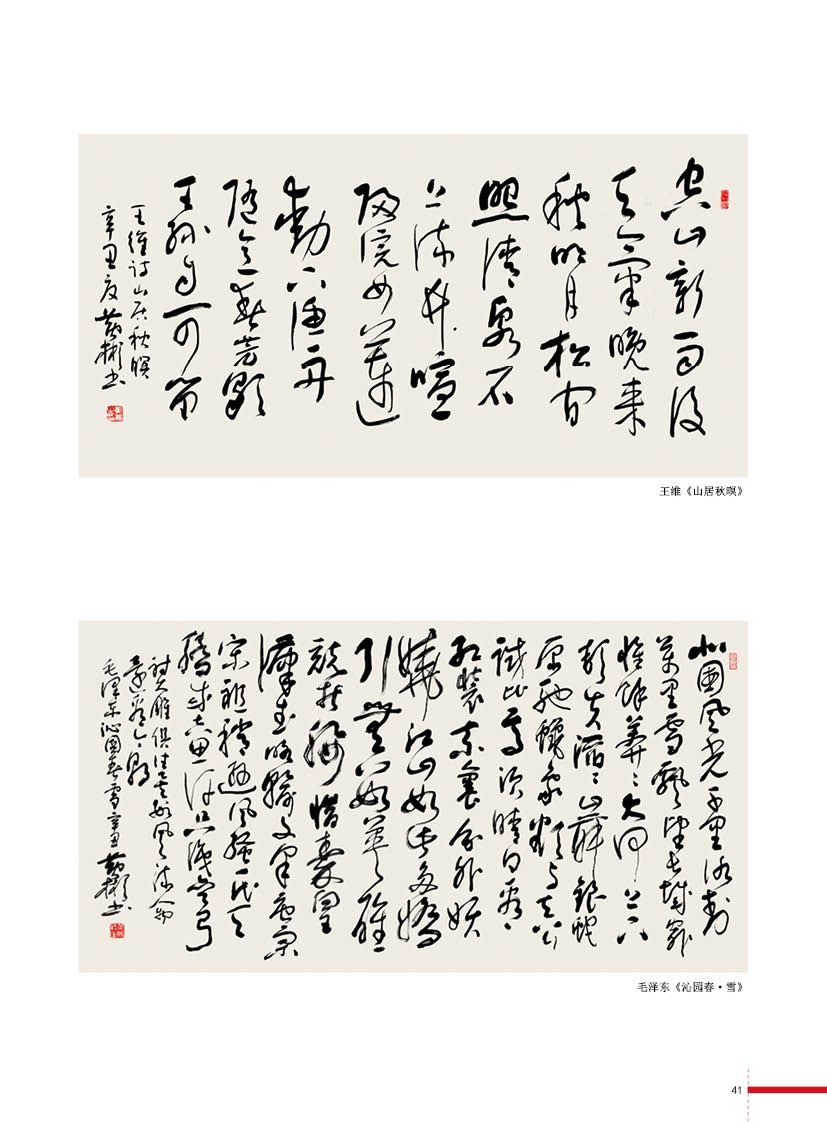 空山新雨後
天氣晚来
秋明月松间
照清泉石
上流竹喧
归浣女蓮
動下漁舟
随意春芳歇
王孫自可留
王維詩山居秋暝
辛丑夏黄彬书
王维《山居秋暝》
北國風光千里冰封
萬里雪飘望长城内
惟餘莽〻大河上下
顿失滔〻山舞銀蛇
原驰蜡象欲与天公
試比高须晴日看
红装素裹分外妖
娆江山如此多嬌
引無數英雄
競折腰惜秦皇
漢武略輸文采唐宗
宋祖稍逊风骚一代天
骄成吉思汗只識弯弓
射大雕俱往矣数风流人物
還看今朝
毛澤东沁园春雪辛丑黄彬书
毛泽东《沁园春·雪》
41